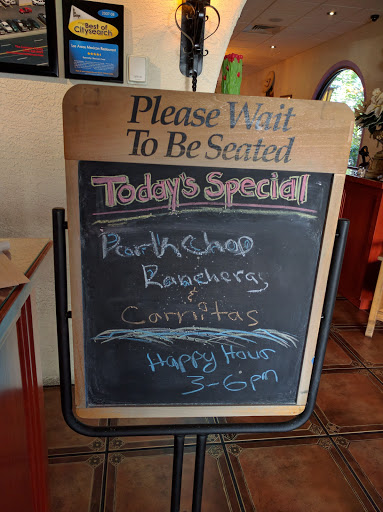 Best of
Citysearch
Please Wait
To Be Seated
Today's Special
Porkchop
Rancheras
&
Carnitas
Happy Hour
3-6pm